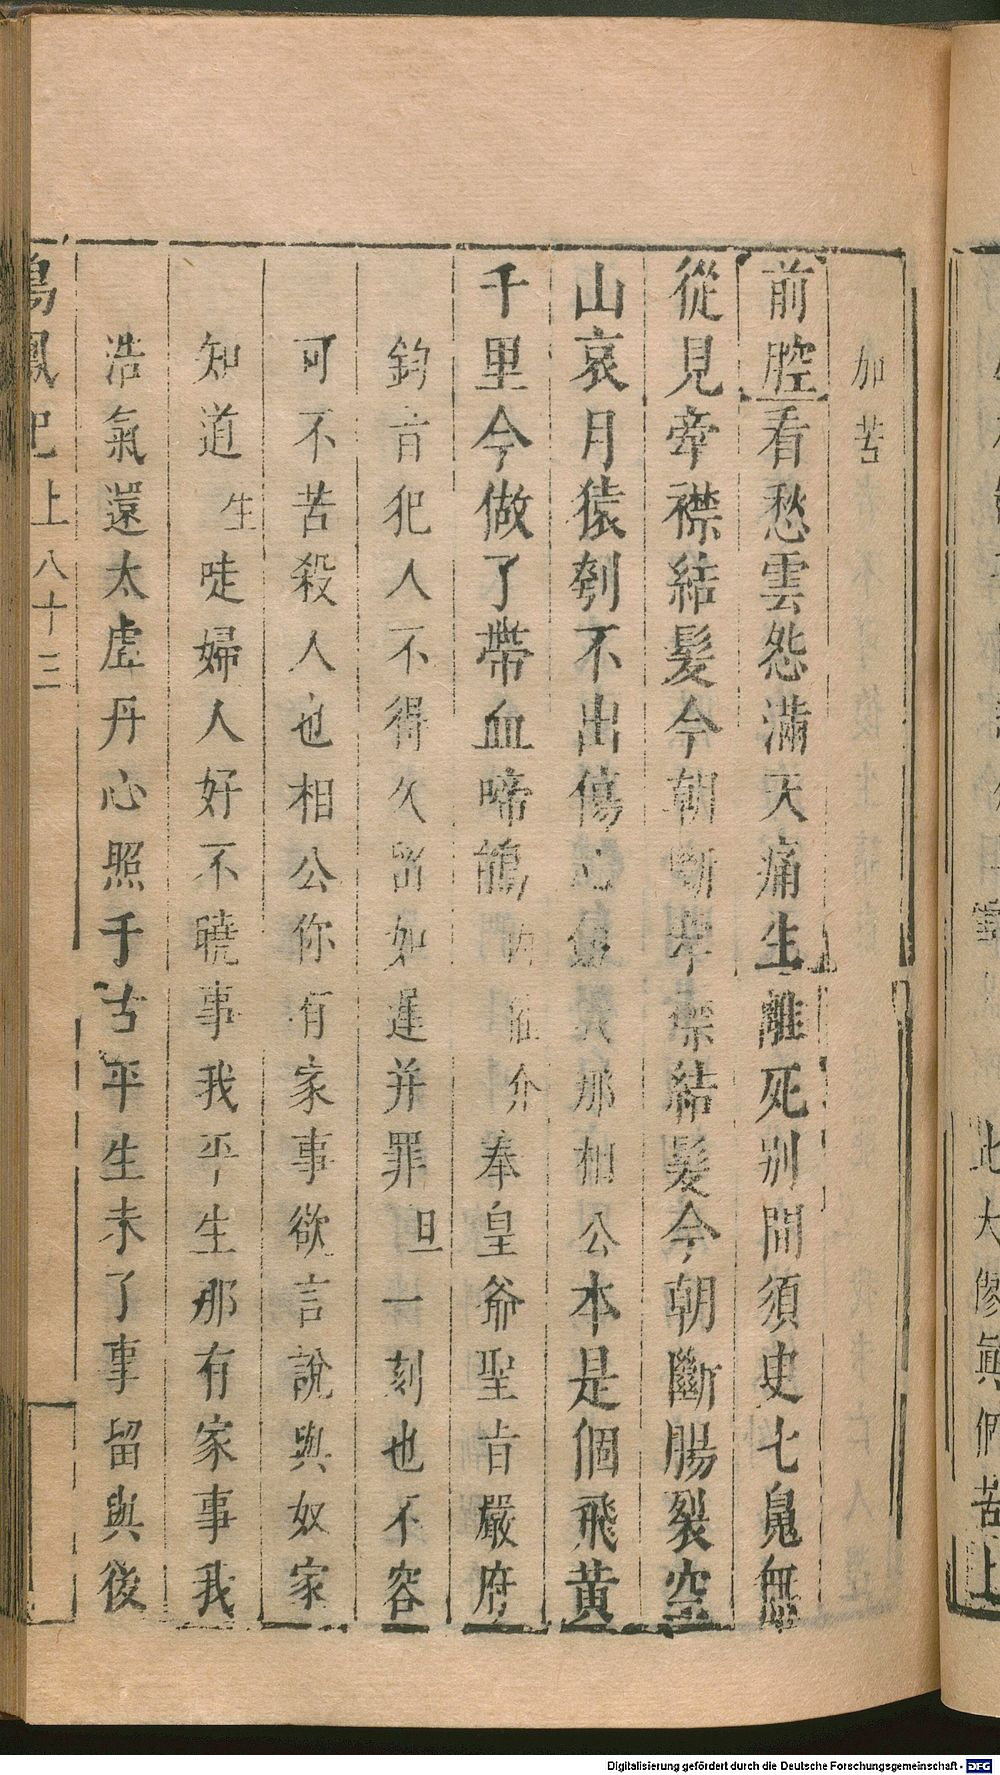 加苦
前腔看愁雲怨滿天痛生離死別間須臾七鬼無
從見牽襟結髮今朝斷牽襟結髮今朝斷腸裂空
山哀月猿刳不出傷心那相公本是個飛黃
千里今做了帶血啼鵑介奉皇爺聖旨嚴府
鈞旨犯人不得久留如遲并罪旦一刻也不容
可不苦殺人也相公你有家事欲言說與奴家
知道生唗婦人好不曉事我平生那有家事我
浩氣還太虛丹心照千古平生未了事留與後
鳴鳳記上八十三
此大傷眞個苦上
Digitalisierung gefördert durch die Deutsche Forschungsgemeinschaft - DFG